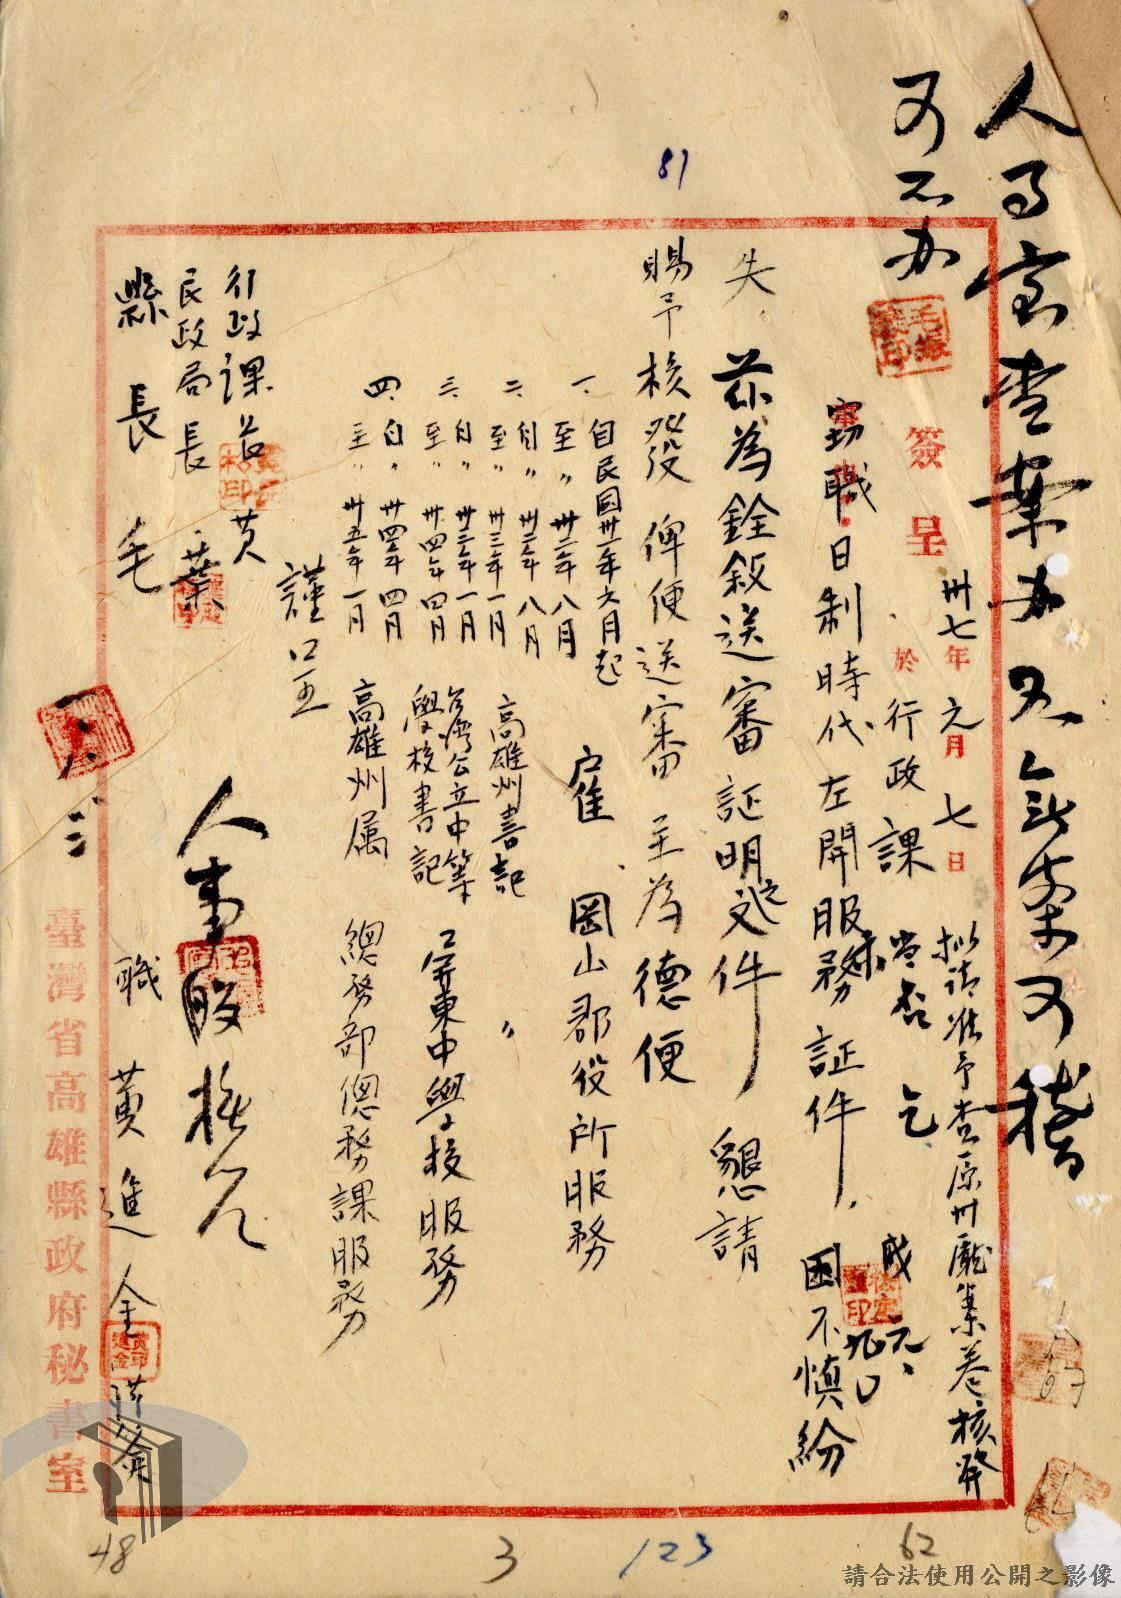 人事室查案办又無案可稽
可不办
81
簽呈
卅七年元月七日
於行政課
擬請准予查原州廳案卷核發
當否乞
竊職日制時代左開服務証件，因不慎紛
失，茲為銓敘送審証明之文件，懇請
賜予核發俾便送審至為德便
一、自民國卅一年六月起
至〃卅二年八月
雇 岡山郡役所服務
二、自〃卅二年八月
至〃卅三年一月
高雄州書記 〃
三、自〃卅三年一月
至〃卅四年四月
台灣公立中等
學校書記
屏東中學校服務
四、自〃卅四年四月
至〃卅五年一月
高雄州属 總務部總務課服務
謹呈
行政課長 黄
民政局長 葉
縣長 毛
人事股
職 黄進金
臺灣省高雄縣政府秘書室
48
3
123
62
請合法使用公開之影像